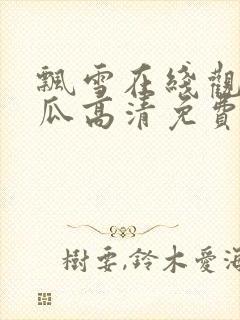 飄雪在綫觀
瓜高清免費
樹要,鈴木愛海